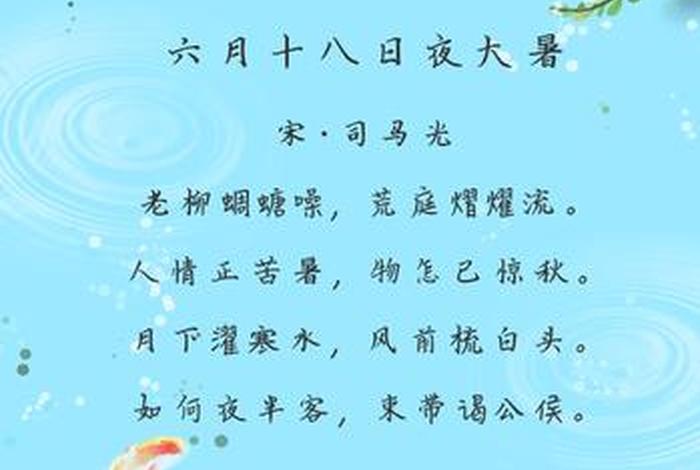 六月十八日夜大暑
宋·司马光
老柳蜩螗噪，荒庭熠耀流。
人情正苦暑，物怎已惊秋。
月下濯寒水，风前梳白头。
如何夜半客，束带谒公侯。